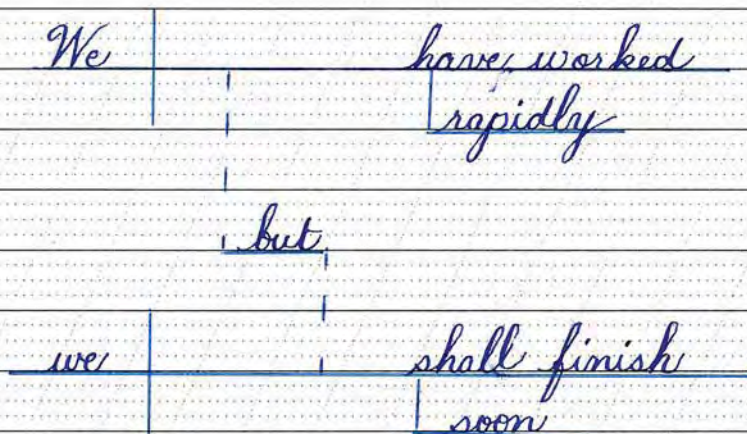 We have worked
rapidly
but
we shall finish
soon